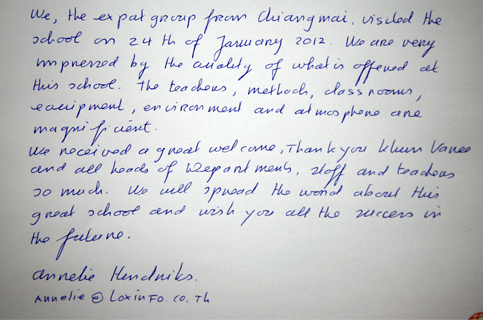 We, the expat group from Chiangmai, visited the
school on 24th of January 2012. We are very
impressed by the quality of what is offered at
this school. The teachers, methods, classrooms,
equipment, environment and atmosphere are
magnificient.
We received a great welcome, Thank you Khun Vanee
and all heads of Departments, staff and teachers
so much. We will spread the word about this
great school and wish you all the success in
the future.
Annelie Hendriks.
Annelie @ Loxinfo.co.th